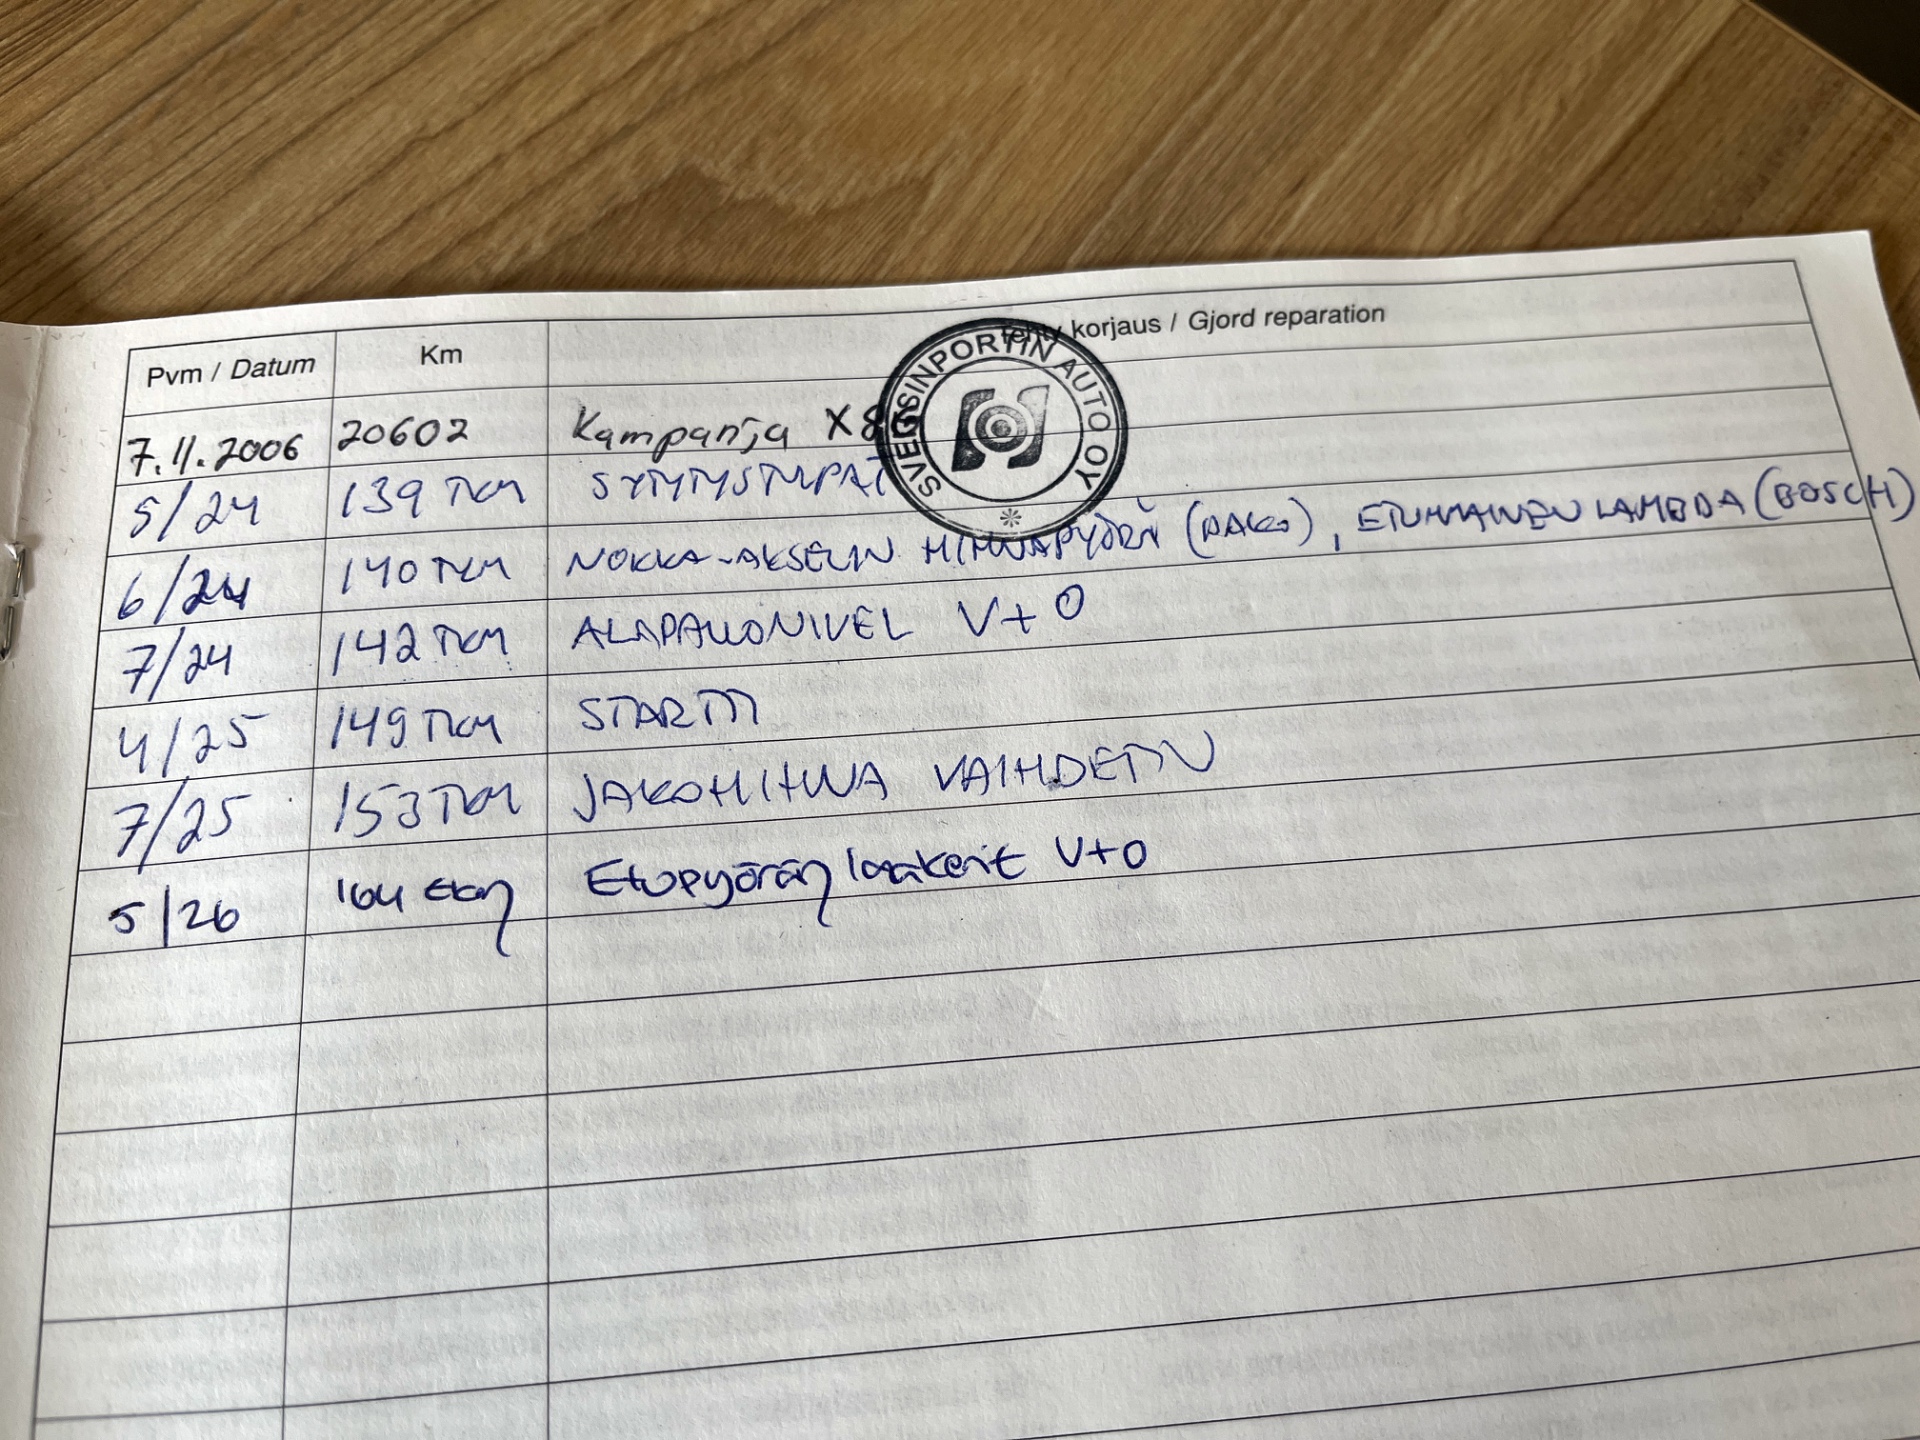 Pvm / Datum Km Tehty korjaus / Gjord reparation
SVENGSINPORTIN AUTO OY
7.11.2006 20602 Kampanja
5/24 139 TKM SYTYTYSTULPAT
6/24 140 TKM NOKKA-AKSELIN HIHNAPYÖRÄ (DAKO), ETUMMAINEN LAMBDA (BOSCH)
7/24 142 TKM ALAPALLONIVEL V+O
4/25 149 TKM STARTTI
7/25 153 TKM JAKOHIHNA VAIHDETTU
5/26 164 tkm Etupyörän laakerit V+O